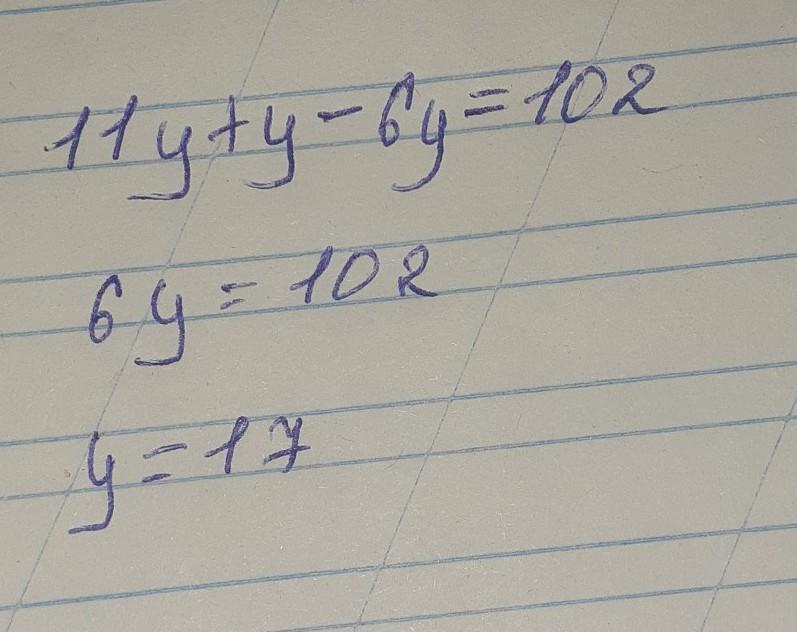 11y+y-6y=102
6y=102
y=17